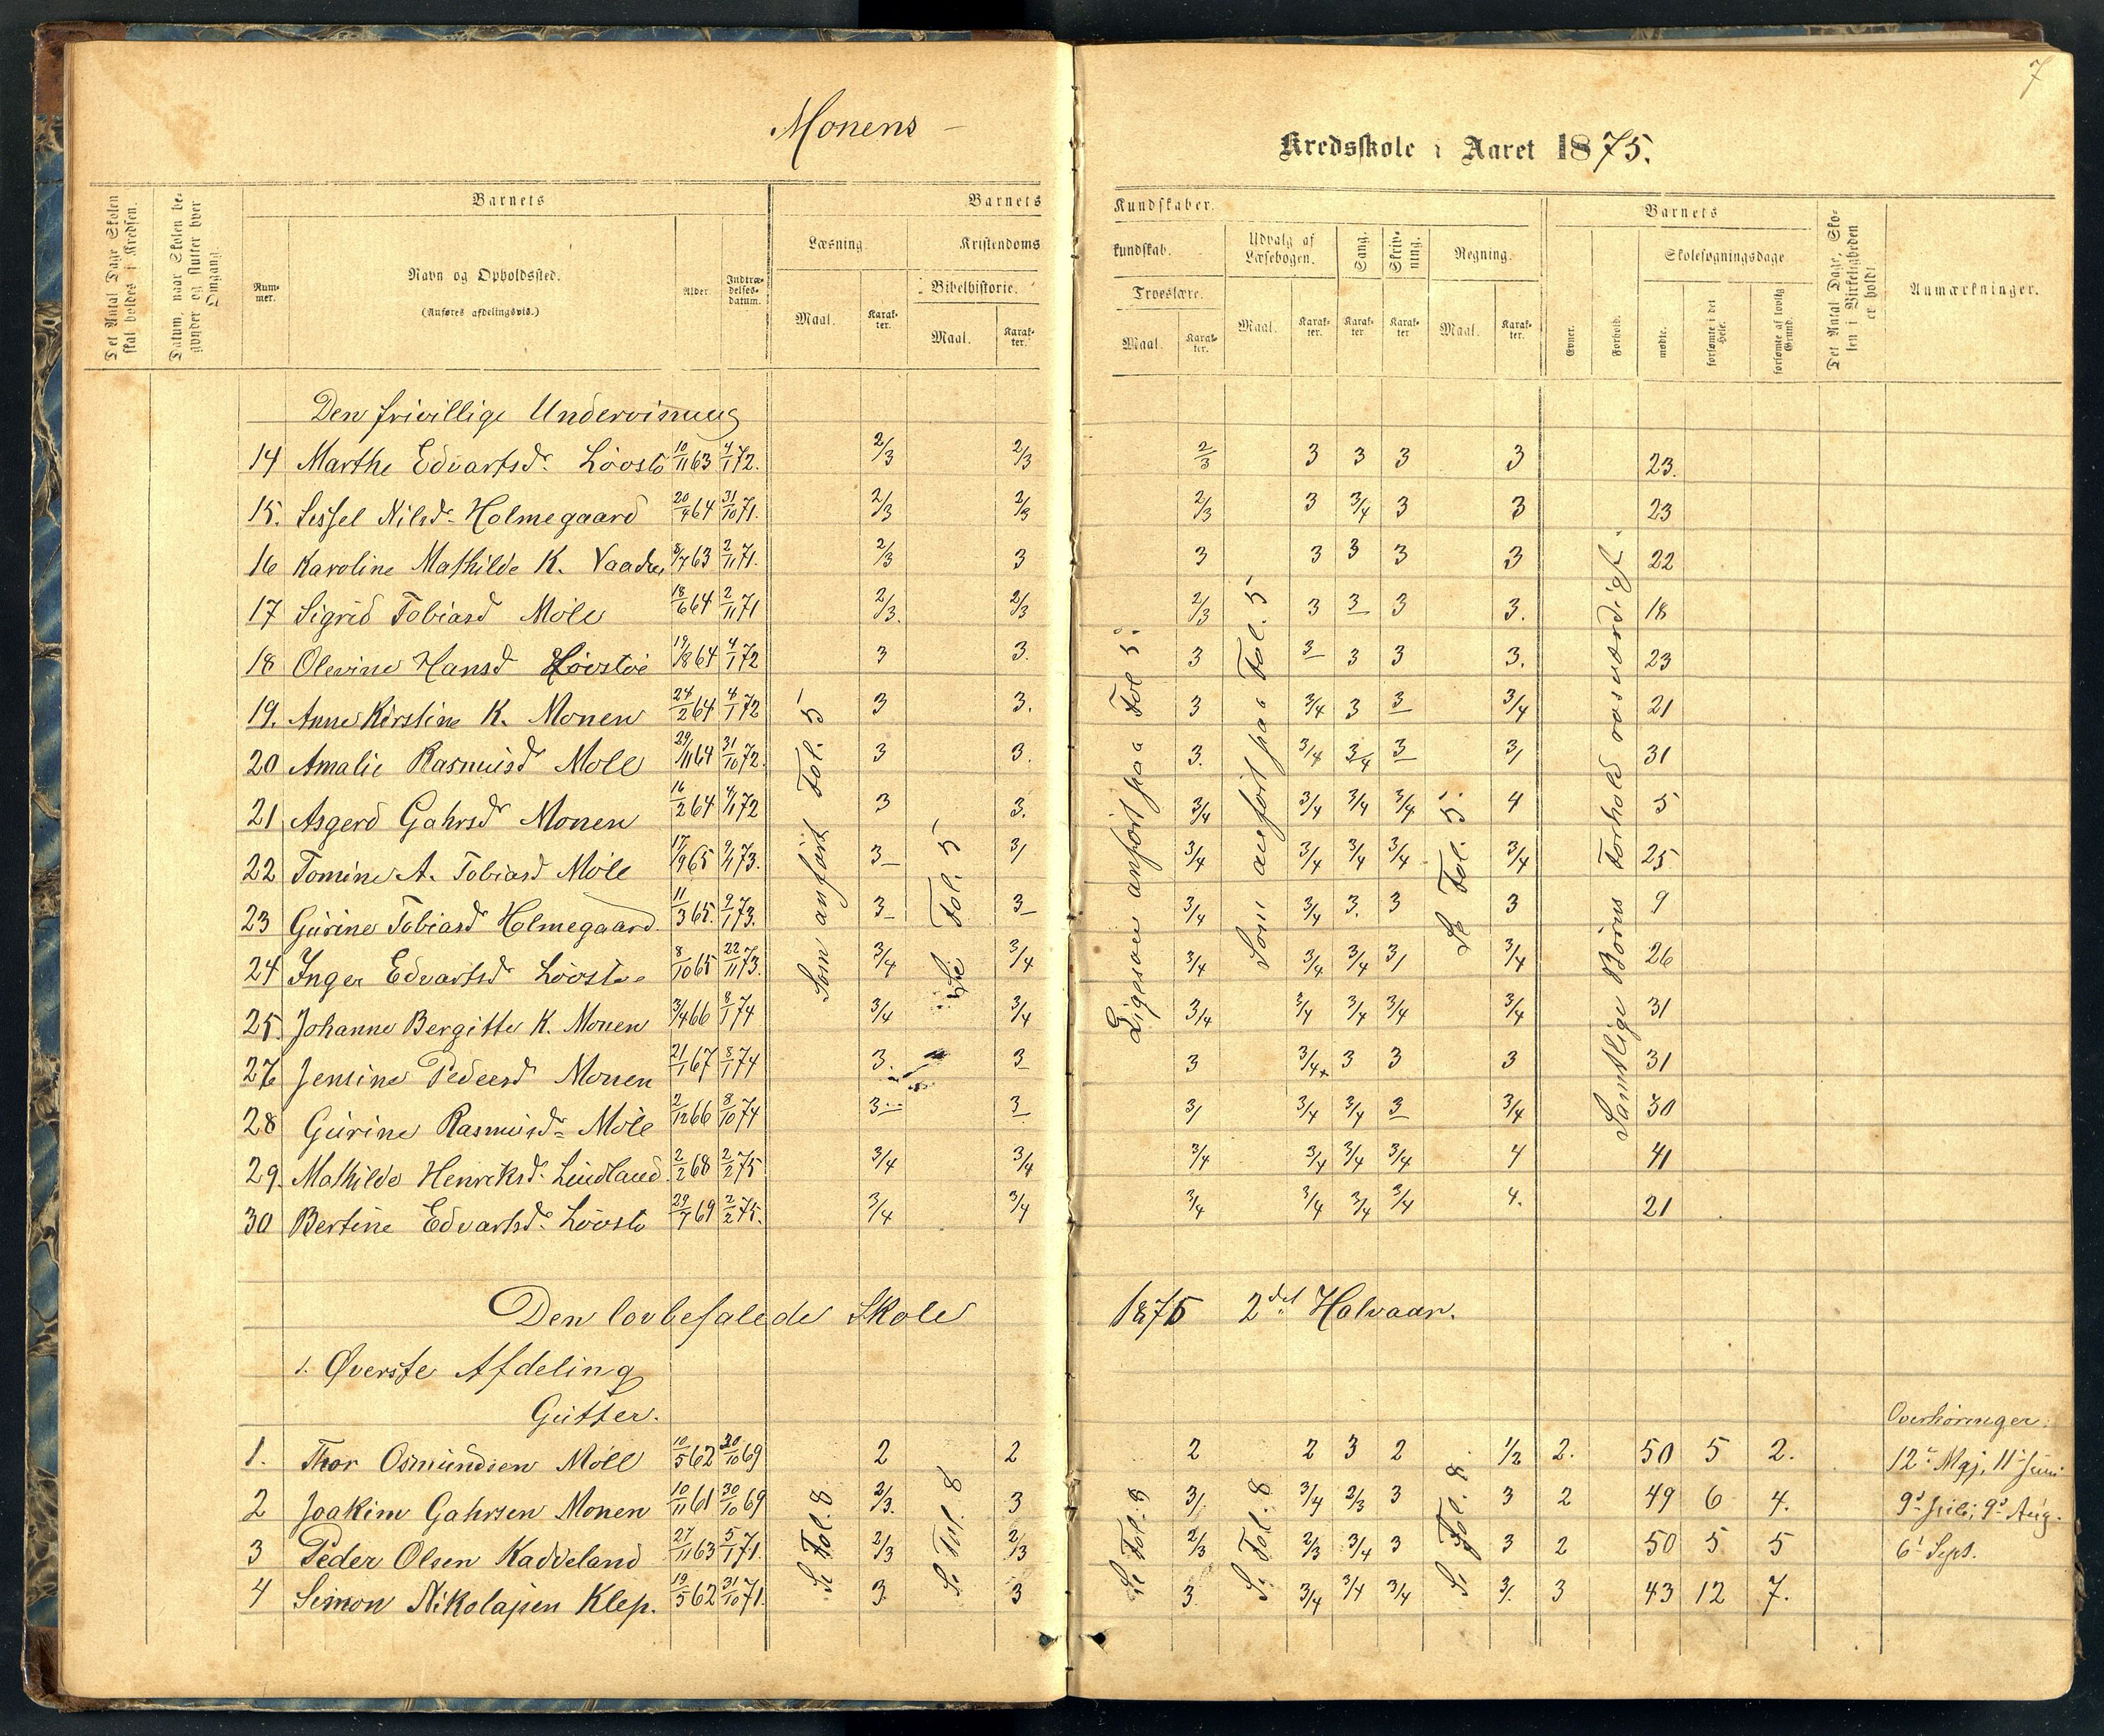 7
Monens – Kredsskole i Aaret 1875.
Det Antal Dage Skolen skal holdes i Kredsen.
Datum, naar Skolen begynder og slutter hver Omgang.
Barnets
Nummer.
Navn og Opholdssted.
(Anføres afdelingsvis.)
Alder.
Indtrædelsesdatum.
Barnets Kundskaber.
Læsning.
Maal.
Karakter.
Kristendomskundskab.
Bibelhistorie.
Maal.
Karakter.
Troeslære.
Maal.
Karakter.
Udvalg af Læsebogen.
Maal.
Karakter.
Sang.
Karakter
Skrivning.
Karakter
Regning.
Maal.
Karakter.
Barnets
Evner.
Forhold.
Skolesøgningsdage
mødte.
forsømte i det Hele.
forsømte af lovlig Grund.
Det Antal Dage, Skolen i Virkeligheden er holdt
Anmærkninger.
Den frivillige Undervisning
14 Marthe Edvartsd. Lövstö 10/11 63 4/1 72. 2/3 2/3 2/3 3 3 3 3 23.
15. Sissel Nilsd. Holmegaard 20/4 64 31/10 71. 2/3 2/3 2/3 3 3/4 3 3 23
16 Karoline Mathilde K. Vaadne 8/7 63 2/11 71. 2/3 3 3 3 3 3 3 22
17 Sigrid Tobiasd Möll 18/6 64 2/11 71 2/3. 2/3 2/3 3 3 3 3. 18
18 Olevine Hansd Hövstöe 19/8 64 4/1 72 3 3. 3 3 3 3 3. 23
19. Anne Kirstine K. Monen 24/2 64 4/1 72 3 3. 3 3/4 3 3 3/4 21
20 Amalie Rasmusd Möll 29/11 64 31/10 72. 3 3. 3. 3/4 3/4 3 3/ 31
21 Asgerd Gahrsd Monen 16/2 64 4/1 72 3 3. 3/4 3/4 3/4 3/4 4 5
22 Tomine A. Tobiasd Möll 17/9 65 2/1 73. 3 3/ 3/4 3/4 3/4 3/4 3/4 25
23 Gurine Tobiasd Holmegaard. 11/3 65. 2/1 73. 3 3 3/4 3/4 3. 3 3 9
24 Inger Edvartsd Lövstöe 8/10 65 22/11 73. 3/4 3/4 3/4 3/4 3/4 3/ 3/4 26
25. Johanne Bergitte K. Monen 3/4 66 8/1 74 3/4 3/4 3/4 3/4 3/4 3/4 3/4 31
27 Jensine Pedersd Monen 21/1 67 8/1 74 3. 3 3 3/4 3 3 3 31
28 Gurine Rasmusd. Möll 2/12 66 8/10 74 3 3 3/ 3/4 3/4 3 3/4 30
29. Mathilde Henriksd. Lindland. 2/2 68 2/2 75 3/4 3/4 3/4 3/4 3/4 3/4 4 41
30 Bertine Edvartsd. Lövstö 29/7 69 2/2 75. 3/4 3/4 3/4 3/4 3/4 3/4 4. 21
Som anført Fol. 5
Se Fol. 5
Ligesom anført paa Fol 5.
Som anført paa Fol. 5
Se Fol. 5.
Samtlige Börns Forhold rosværdigt.
Den lovbefalede Skole 1875 2det Halvaar.
1. Øverste Afdeling
Gutter.
Overhöringer.
1. Thor Osmundsen Möll 10/5 62 30/10 69 2 2 2 2 3 2 1/2 2. 50 5 2. 12te Maj, 11te Juni
2 Joakim Gahrsen Monen 10/11 61 30/10 69 2/3. 3 3/ 3/4 2/3 3 3 2 49 6 4. 9de Juli; 9de Aug.
3 Peder Olsen Kaddeland 27/11 63 5/1 71. 2/3 2/3 2/3 2/3 3/4 3 3 2 50 5 5 6te Sept.
4 Simon Nikolajsen Klep. 19/5 62 31/10 71. 3. 3 3. 3/4 3/4 3/4 3/. 3 43 12 7.
Se Fol. 8
Se Fol. 8
Se Fol. 8
Se Fol. 8
Se Fol. 8